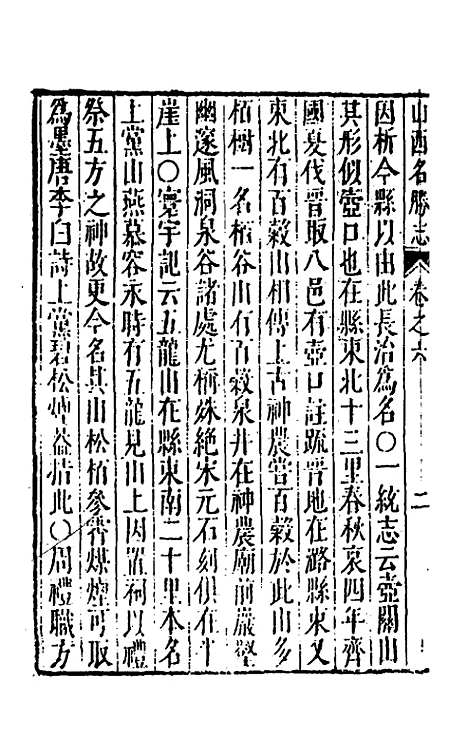 山西名勝志 卷之六 二
因析今縣以由此長治為名〇一統志云壺關山
其形似壺口也在縣東北十三里春秋哀四年齊
國夏伐晉取八邑有壺口註疏晉地在潞縣東又
東北有百穀山相傳上古神農嘗百穀於此山多
栢樹一名栢谷山有百穀泉井在神農廟前巖壑
幽邃風洞泉谷諸處尤稱姝絶宋元石刻俱在半
崖上〇寰宇記云五龍山在縣東南二十里本名
上黨山燕慕容永時有五龍見山上因置祠以禮
祭五方之神故更今名其山松栢參霄煤煙可取
為墨唐李白詩上黨碧松煙葢指此〇周禮職方